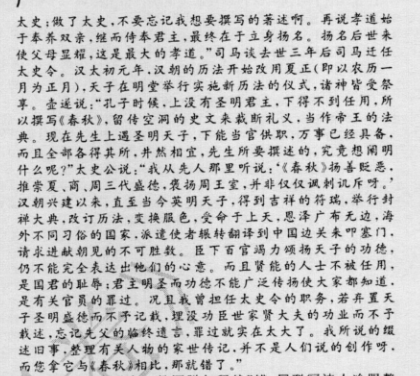 太史;做了太史,不要忘记我想要撰写的著述啊。再说孝道始
于奉养双亲,继而侍奉君主,最终在于立身扬名。扬名后世来
使父母显耀,这是最大的孝道。”司马谈去世三年后司马迁任
太史令。汉太初元年,汉朝的历法开始改用夏正(即以农历一
月为正月),天子在明堂举行实施新历法的仪式,诸神皆受祭
享。壶遂说:“孔子时候,上没有圣明君主,下得不到任用,所
以撰写《春秋》,留传空洞的史文来裁断礼义,当作帝王的法
典。现在先生上遇圣明天子,下能当官供职,万事已经具备,
而且全部各得其所,井然相宜,先生所要撰述的,究竟想阐明
什么呢?”太史公说:“我从先人那里听说:‘《春秋》扬善贬恶,
推崇夏、商、周三代盛德,褒扬周王室,并非仅仅讽刺讥斥呀。’
汉朝兴建以来,直至当今英明天子,得到吉祥的符瑞,举行封
禅大典,改订历法,变换服色,受命于上天,恩泽广布无边,海
外不同习俗的国家,派遣使者辗转翻译到中国边关来叩塞门,
请求进献朝见的不可胜数。臣下百官竭力颂扬天子的功德,
仍不能完全表达出他们的心意。而且贤能的人士不被任用,
是国君的耻辱;君主明圣而功德不能广泛传扬使大家都知道,
是有关官员的罪过。况且我曾担任太史令的职务,若弃置天
子圣明盛德而不予记载,埋没功臣世家贤大夫的功业而不予
载述,忘记先父的临终遗言,罪过就实在太大了。我所说的缀
述旧事,整理有关人物的家世传记,并不是人们说的创作呀,
而您拿它与《春秋》相比,那就错了。”